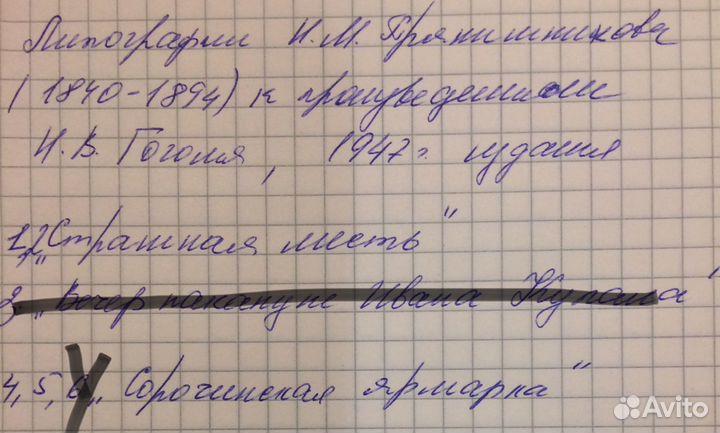 Литографии И.М. Прянишникова
(1840-1894) к произведениям
Н.В. Гоголя, 1947г. издания
1,2 „Страшная месть"
3 „Вечер накануне Ивана Купала"
4, 5, 6 „Сорочинская ярмарка"
Avito